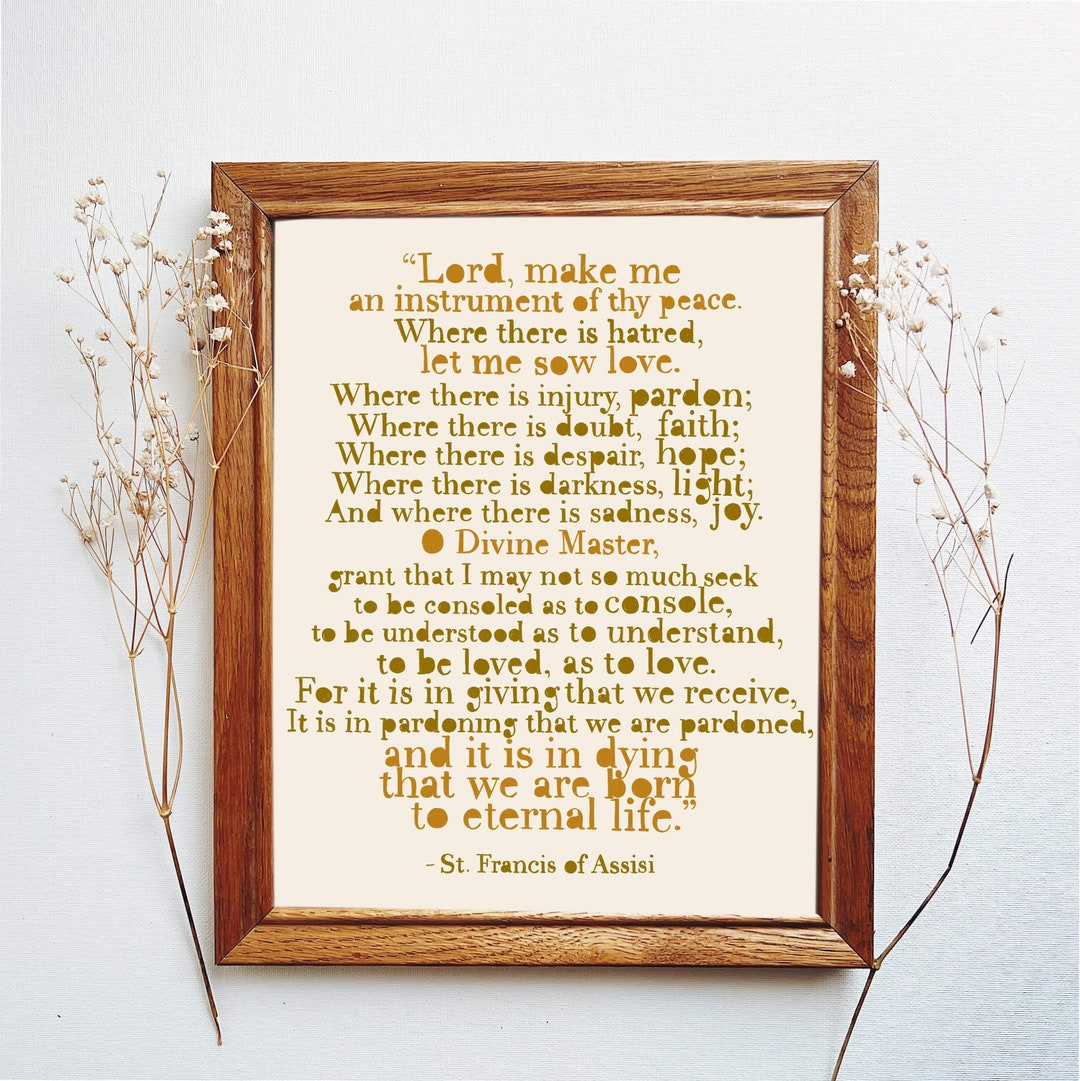 “Lord, make me
an instrument of thy peace.
Where there is hatred,
let me sow love.
Where there is injury, pardon;
Where there is doubt, faith;
Where there is despair, hope;
Where there is darkness, light;
And where there is sadness, joy.
O Divine Master,
grant that I may not so much seek
to be consoled as to console,
to be understood as to understand,
to be loved, as to love.
For it is in giving that we receive,
It is in pardoning that we are pardoned,
and it is in dying
that we are born
to eternal life.”
- St. Francis of Assisi